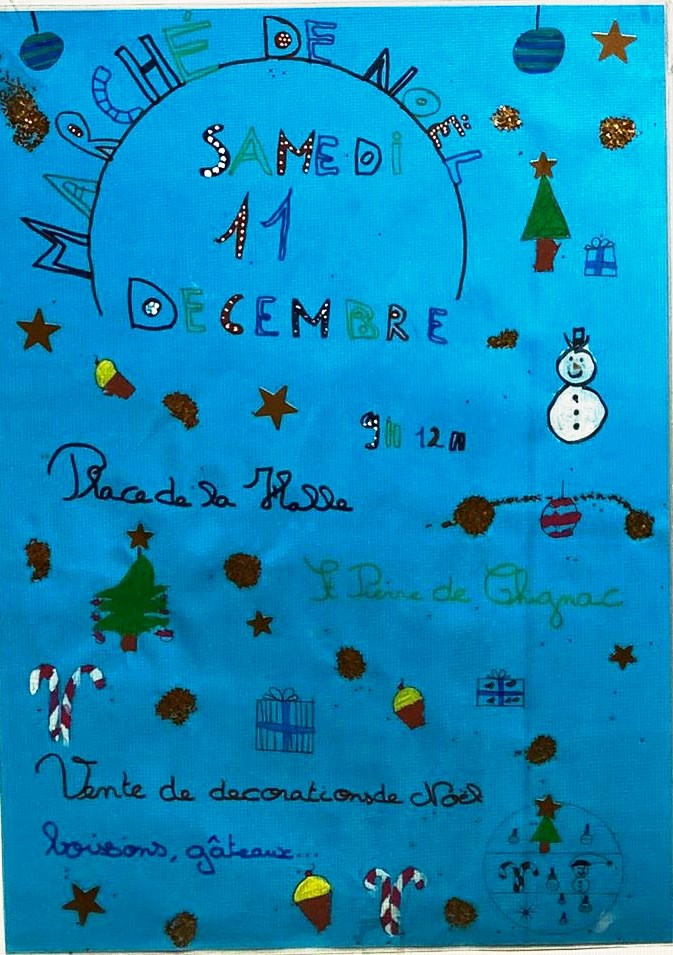 MARCHÉ DE NOËL
SAMEDI
11
DECEMBRE
9H 12H
Place de la Halle
St Pierre de Chignac
Vente de decorations de Noël
boissons, gâteaux...